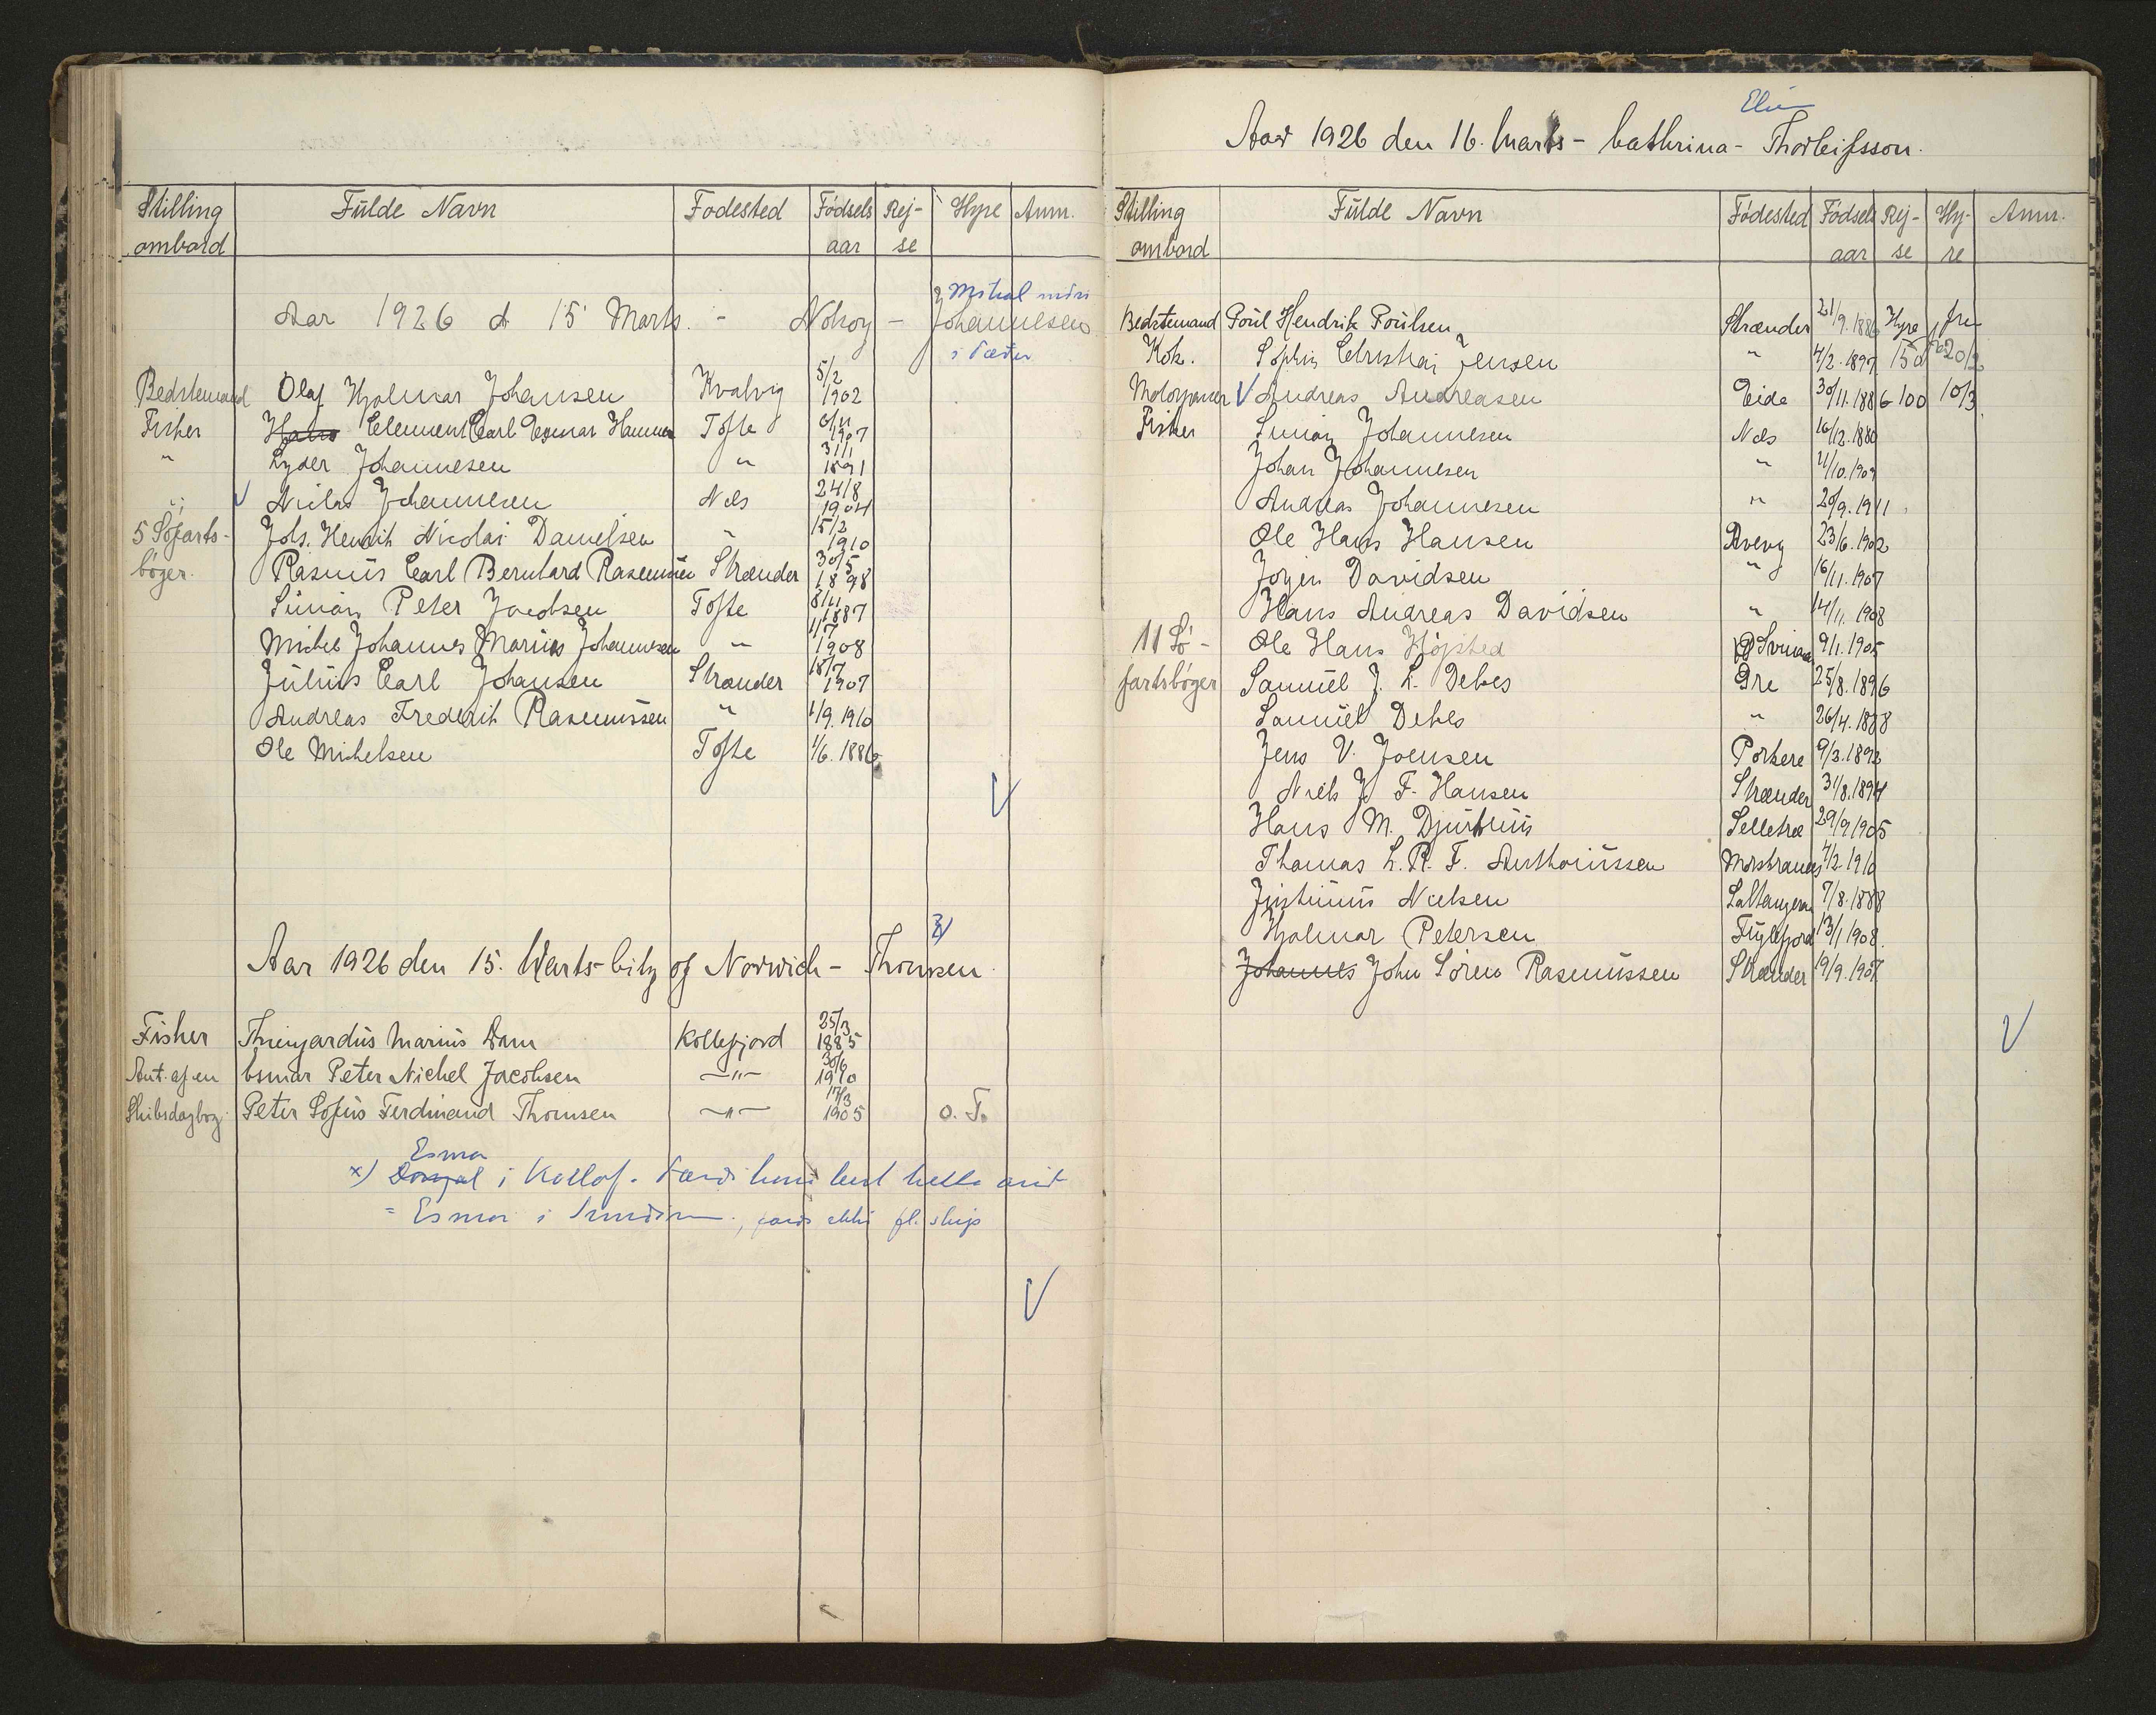 Stilling ombord | Fulde Navn | Fodested | Födsels aar | Rej-se | Hyre | Anm.
Aar 1926 d 15 Marts. - Nolsoy - Johannesen
Bedstemand | Olaf Hjalmar Johansen | Kvalvig | 5/2 1902
Fisher | Hans Clement Carl Esmar Hammer | Tofte | 1907
" | Lyder Johannesen | " | 31/1 1891
" | V Niclas Johannesen | Nes | 24/8 1904
5 Söfarts- | Johs. Henrik Nicolai Danielsen | " | 15/2 1910
böger. | Rasmus Carl Bernhard Rasmussen | Strænder | 30/5 1898
Simon Peter Jacobsen | Tofte | 8/11 1887
Michel Johannes Marius Johannesen | " | 1/7 1908
Julius Carl Johansen | Strænder | 18/7 1907
Andreas Frederik Rasmussen | " | 1/9. 1910
Ole Michelsen | Tofte | 1/6. 1886
V
Aar 1926 den 15. Marts - City of Norwich - Thomsen.
Fisher | Thriugardus Marius Dam | Kollefjord | 25/3 1885
Ant. af en | Esmar Peter Nichel Jacobsen | — " — | 30/6 1910
Skibsdagbog. | Peter Sofus Ferdinand Thomsen | — " — | 17/3 1905 | O. T.
Esmar
x) i Kollaf.
= Esmar i
V
Elin
Aar 1926 den 16. Marts - Cathrina - Thorleifsson.
Stilling ombord | Fulde Navn | Födested | Födsels aar | Rej-se | Hy-re | Anm.
Bedstemand | Poul Hendrik Poulsen | Strænder | 21/9. 1886 | Hyre | fra
Kok. | Sophus Christian Jensen | " | 4/2. 1897 | 150 | 20/2
Motorpasser | V Andreas Andreasen | Eide | 30/11. 1886 | 100 | 10/3
Fisker | Simon Johannesen | Nes | 16/12. 1880
Johan Johannesen | " | 4/10. 1909
Andreas Johannesen | " | 20/9. 1911
Ole Hans Hansen | Rvevg | 23/6. 1902
Jögen Davidsen | " | 16/11. 1907
Hans Andreas Davidsen | " | 14/11. 1908
11 Sö- | Ole Hans Höjsted | Svinaa | 9/1. 1905
fartsböger | Samuel J. L. Debes | Öre | 25/8. 1896
Samuel Debes | " | 26/4. 1888
Jens V. Joensen | Porkere | 9/3. 1892
Niels J. F. Hansen | Strænder | 31/8. 1894
Hans M. Djurhuus | Selletræ | 29/9 1905
Thomas L. R. F. Anthoniussen | Morskranes | 4/2. 1910
Justinus Nielsen | Saltangeraa | 7/8. 1888
Hjalmar Petersen | Fuglefjord | 13/1 1908.
Johannes John Sören Rasmussen | Strænder | 19/9. 1907
V